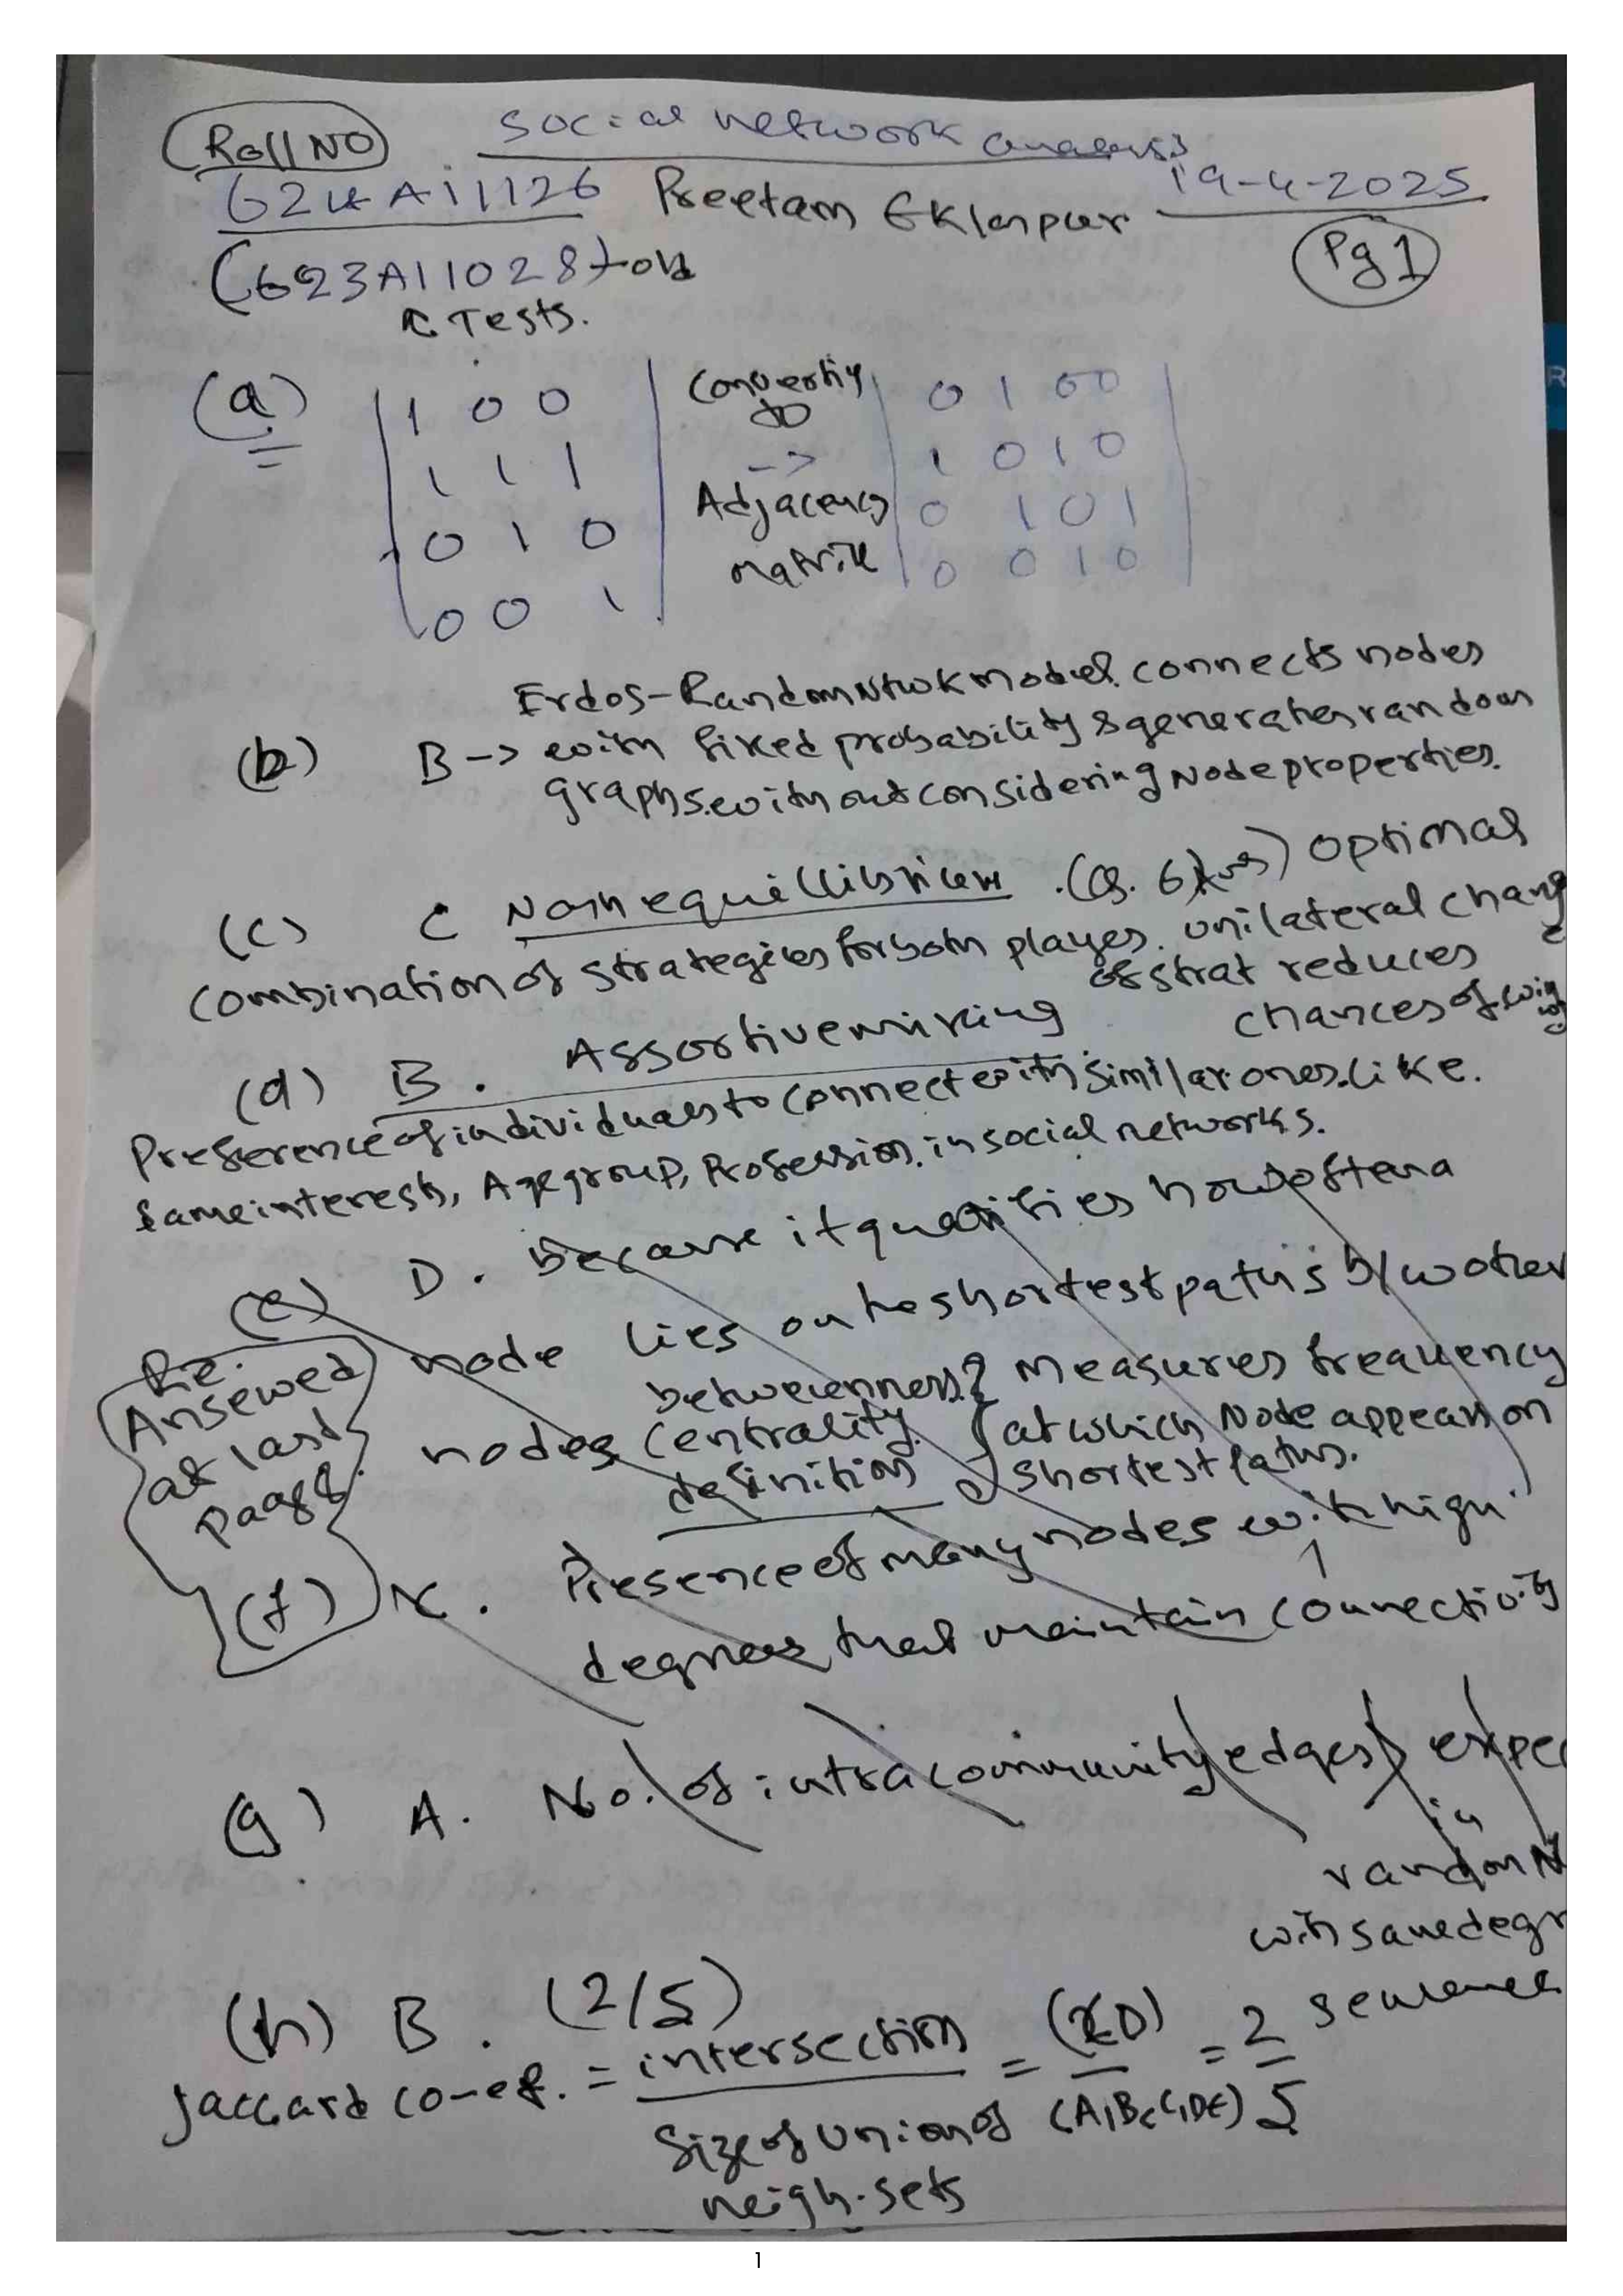 Roll NO
Social network analysis
G24AI1126 Preetam Eklaspur 19-4-2025
Pg 1
(G23AI1028) old
Tests.
(a)
1 0 0
1 1 1
0 1 0
0 0 1
Converting
to
->
Adjacency
matrix
0 1 0 0
1 0 1 0
0 1 0 1
0 0 1 0
Erdos-Random Ntwk model connects nodes
(b) B -> with fixed probability & generates random
graphs without considering Node properties.
(c) C Nash equillibrium. optimal
combination of strategies for both players. unilateral change
of strat reduces
chances of
(d) B. Assortive mixing
Preference of individuals to connect with similar ones. like
same interests, Age group, Profession in social networks.
(e) D. because it quantifies how often a
node lies on the shortest paths b/w other
Re.
Answered
at last
page
nodes
betweenness
centrality
definition
Measures frequency
at which Node appears on
shortest paths.
(f) Presence of many nodes with high
degrees that maintain connectivity
(g) A. No. of intra community edges expec
in
random N
with same degr
sequence
(h) B. (2/5)
Jaccard co-ef. = intersection = (C,D) = 2
Size of union of (A,B,C,D,E) 5
neigh. sets
1